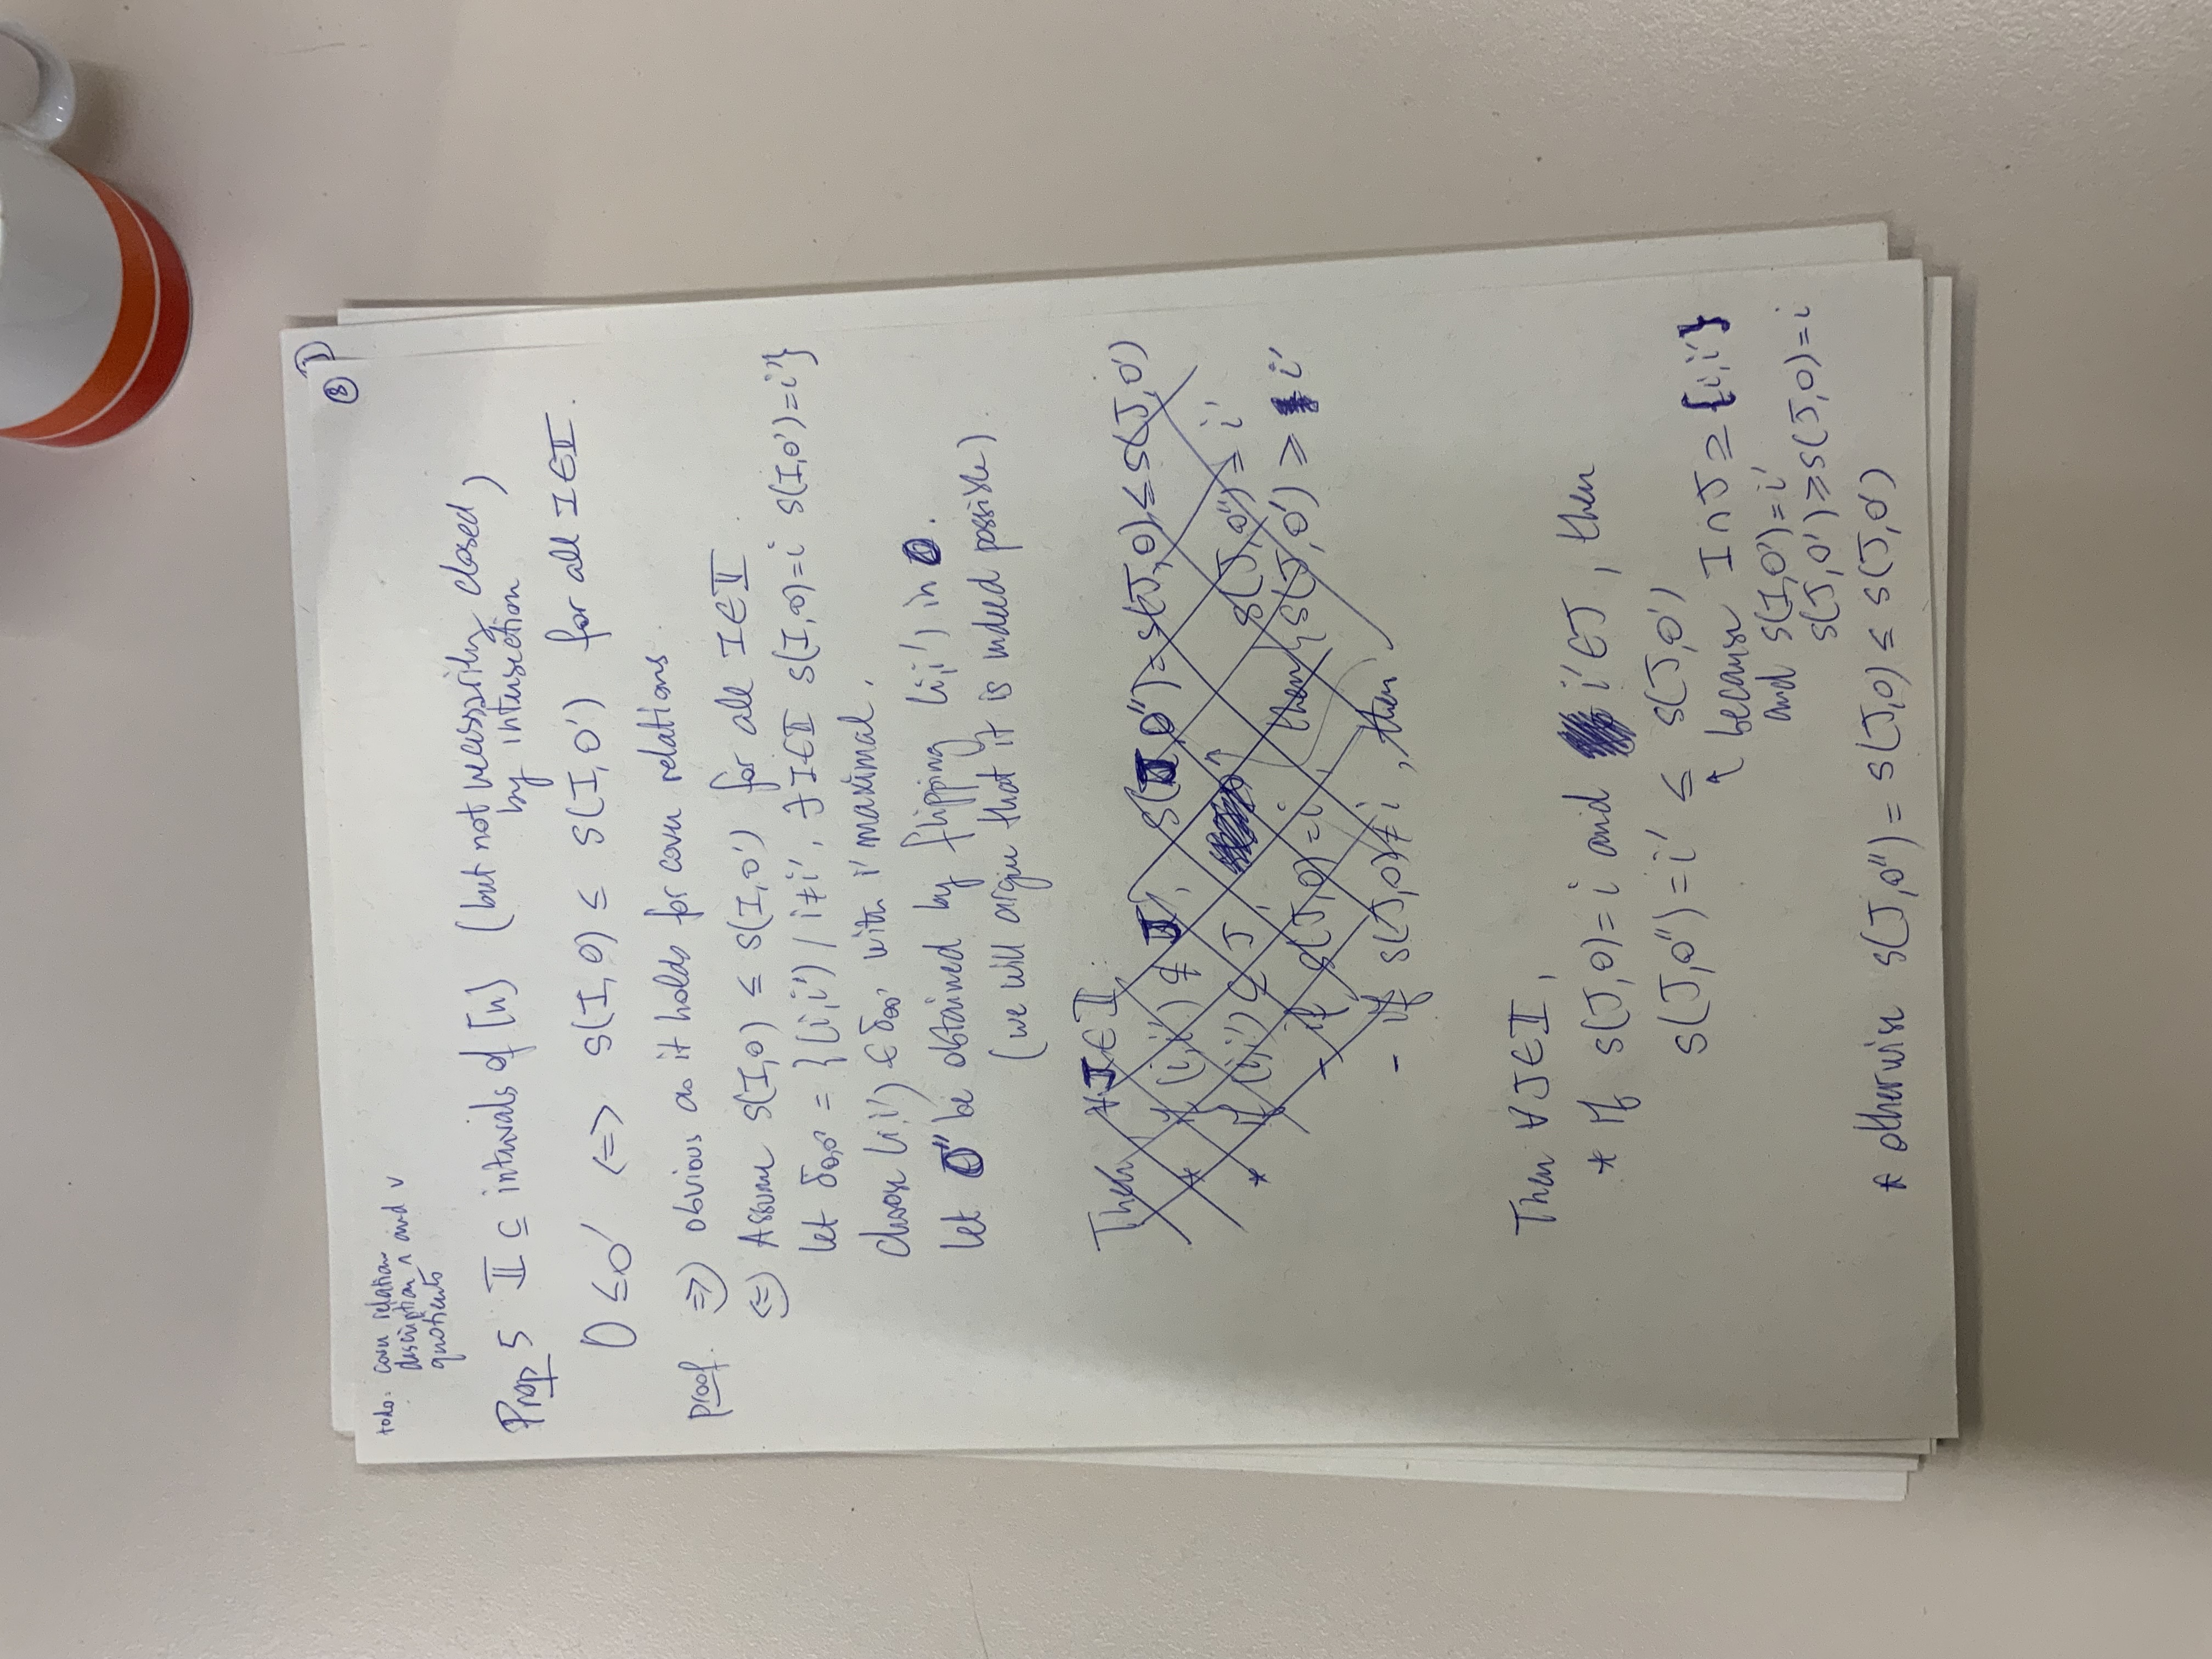 ③ 1
todo: cover relation
description ∧ and ∨
quotients
Prop 5 𝕀 ⊆ intervals of [n] (but not necessarily closed
by intersection)
O ≤ O' <=> s(I,O) ≤ s(I,O') for all I ∈ 𝕀.
proof. =>) obvious as it holds for cover relations
<=) Assume s(I,O) ≤ s(I,O') for all I ∈ 𝕀
let δ_{OO'} = {(i,i') / i≠i', ∃ I ∈ 𝕀 s(I,O)=i s(I,O')=i'}
choose (i,i') ∈ δ_{OO'} with i' maximal.
Let O'' be obtained by flipping (i,i') in O.
(we will argue that it is indeed possible)
Then ∀ J ∈ 𝕀,
* (i,i') ⊈ J, s(J,O'') = s(J,O) ≤ s(J,O')
* if (i,i') ⊆ J,
- if s(J,O) = i, then { s(J,O'') ≥ i'
s(J,O') ≥ i'
- if s(J,O) ≠ i, then
Then ∀ J ∈ 𝕀,
* If s(J,O) = i and i' ∈ J, then
s(J,O'') = i' ≤ s(J,O')
↑ because I ∩ J ⊇ {i,i'}
and s(I,O')=i'
s(J,O') ≥ s(J,O) = i
* otherwise s(J,O'') = s(J,O) ≤ s(J,O')